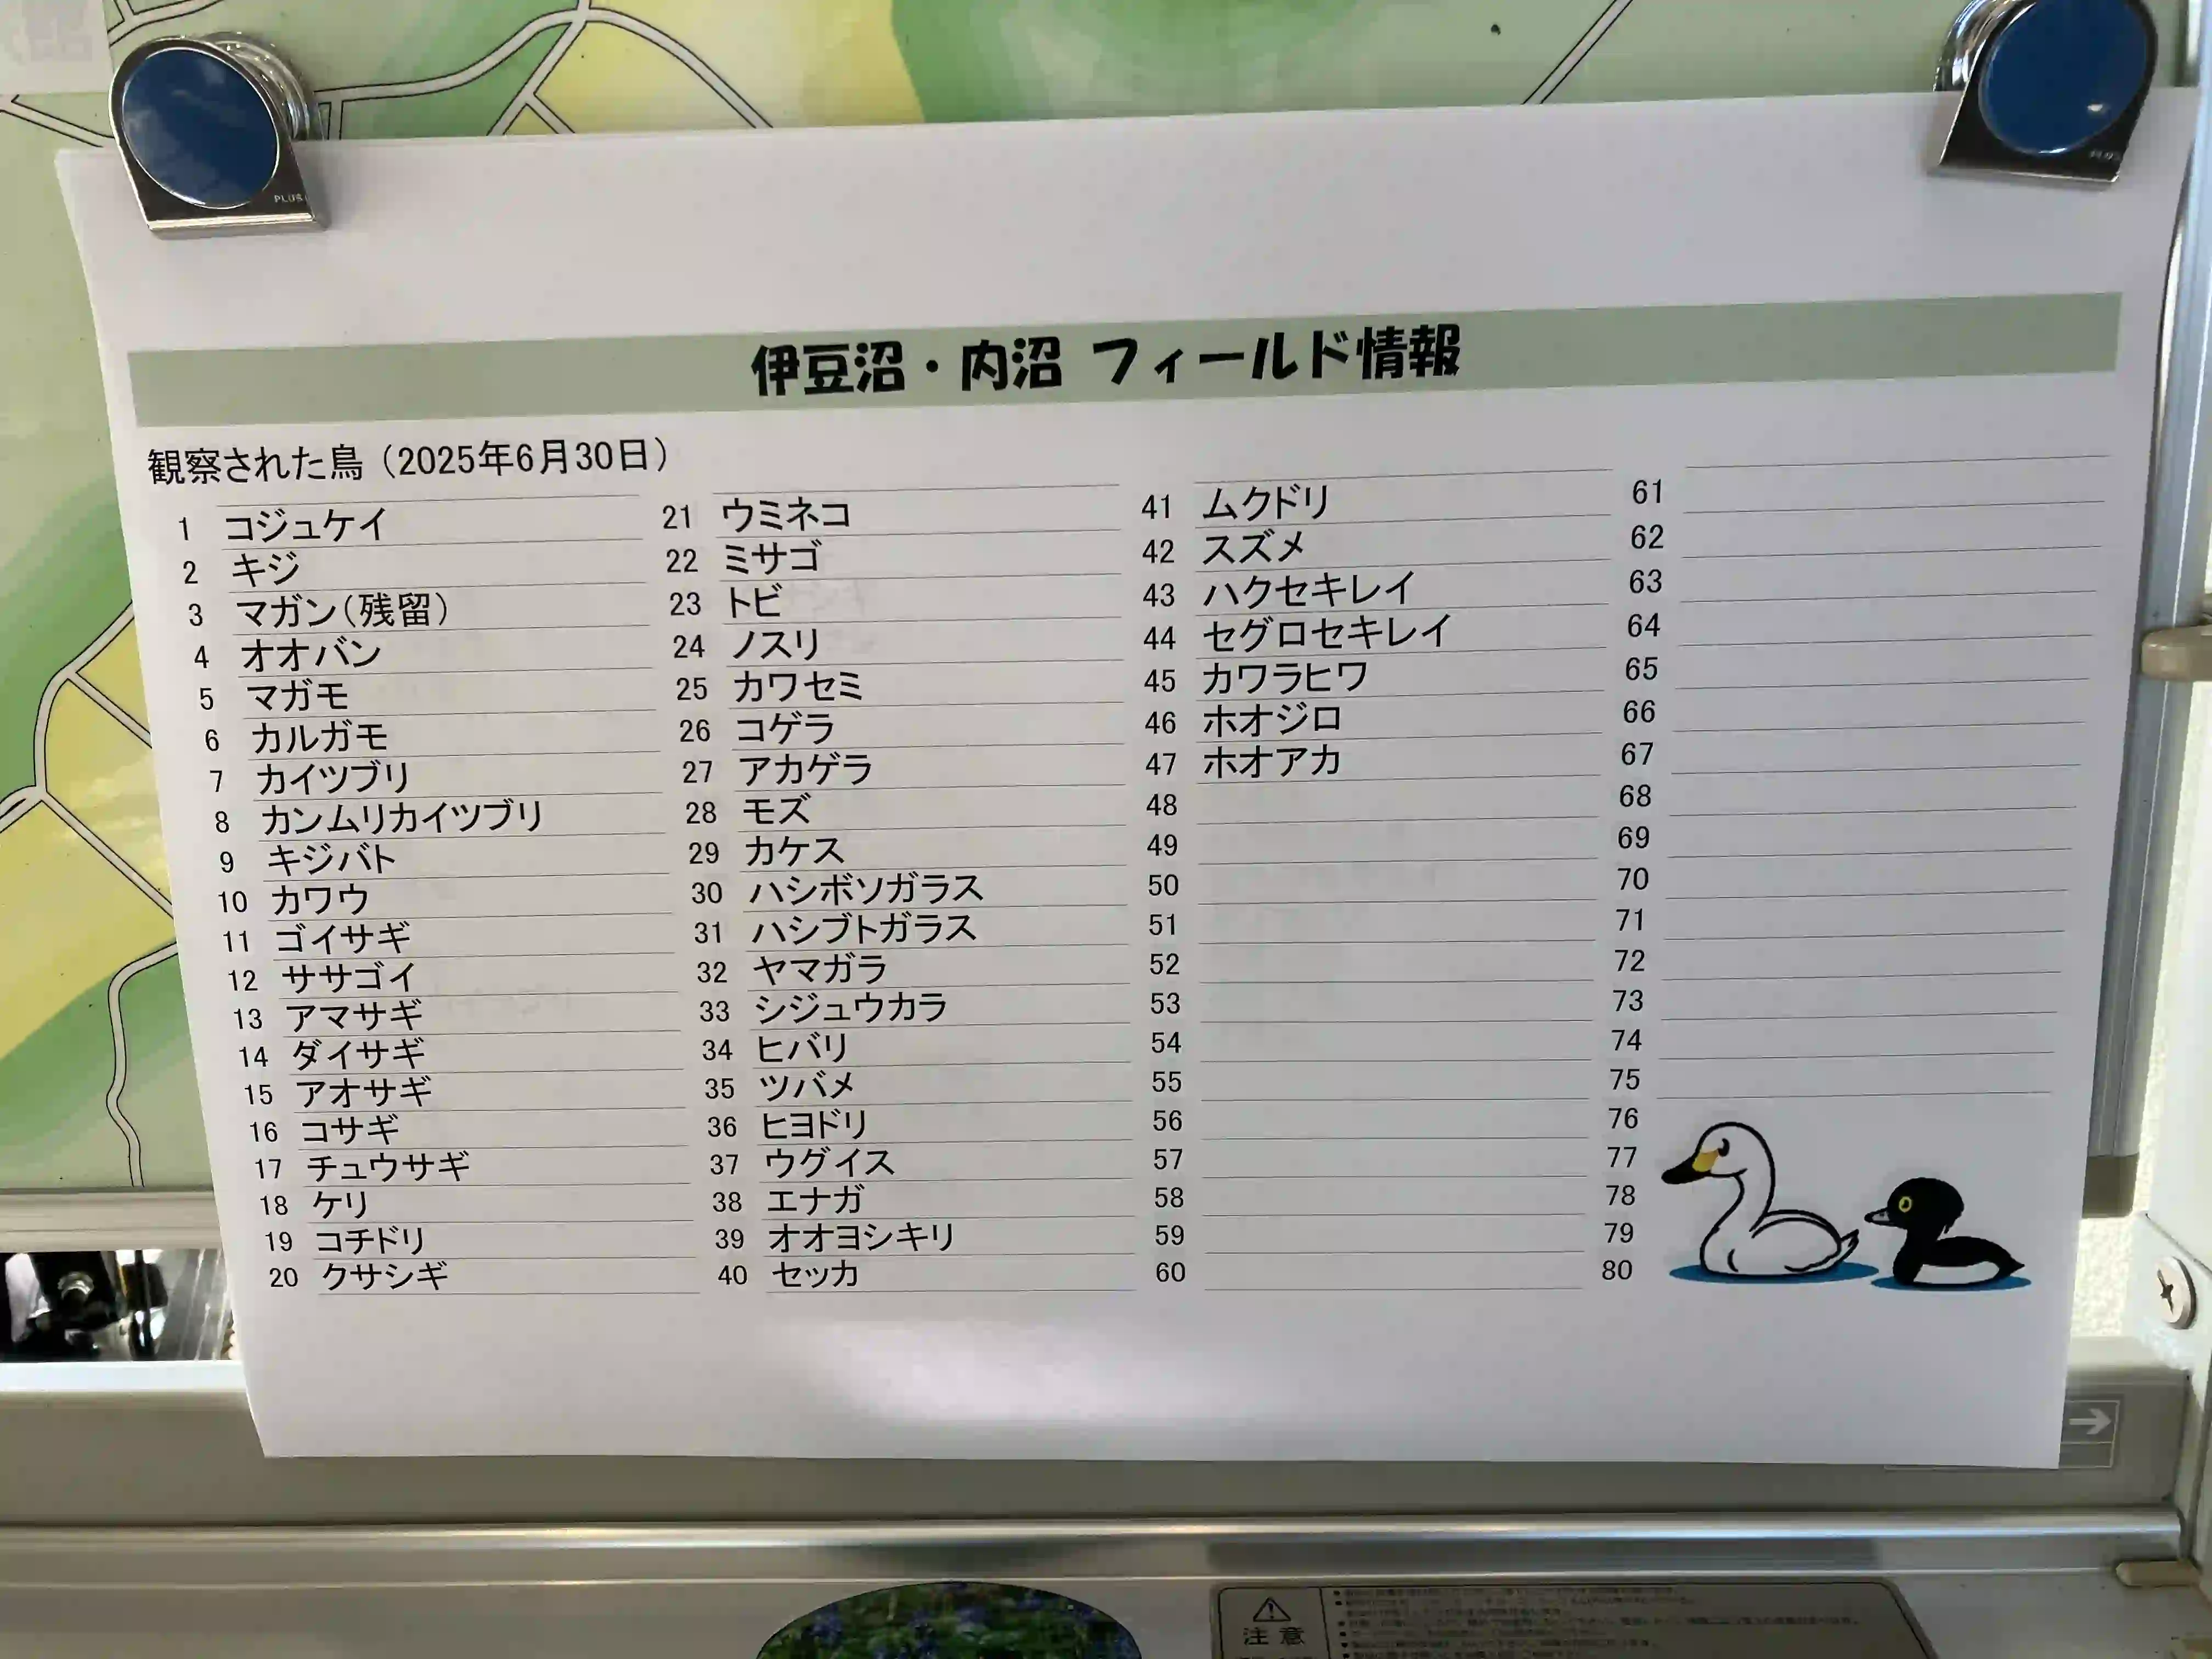 PLUS
PLUS
伊豆沼・内沼 フィールド情報
観察された鳥（2025年6月30日）
1 コジュケイ
2 キジ
3 マガン（残留）
4 オオバン
5 マガモ
6 カルガモ
7 カイツブリ
8 カンムリカイツブリ
9 キジバト
10 カワウ
11 ゴイサギ
12 ササゴイ
13 アマサギ
14 ダイサギ
15 アオサギ
16 コサギ
17 チュウサギ
18 ケリ
19 コチドリ
20 クサシギ
21 ウミネコ
22 ミサゴ
23 トビ
24 ノスリ
25 カワセミ
26 コゲラ
27 アカゲラ
28 モズ
29 カケス
30 ハシボソガラス
31 ハシブトガラス
32 ヤマガラ
33 シジュウカラ
34 ヒバリ
35 ツバメ
36 ヒヨドリ
37 ウグイス
38 エナガ
39 オオヨシキリ
40 セッカ
41 ムクドリ
42 スズメ
43 ハクセキレイ
44 セグロセキレイ
45 カワラヒワ
46 ホオジロ
47 ホオアカ
48
49
50
51
52
53
54
55
56
57
58
59
60
61
62
63
64
65
66
67
68
69
70
71
72
73
74
75
76
77
78
79
80
注意